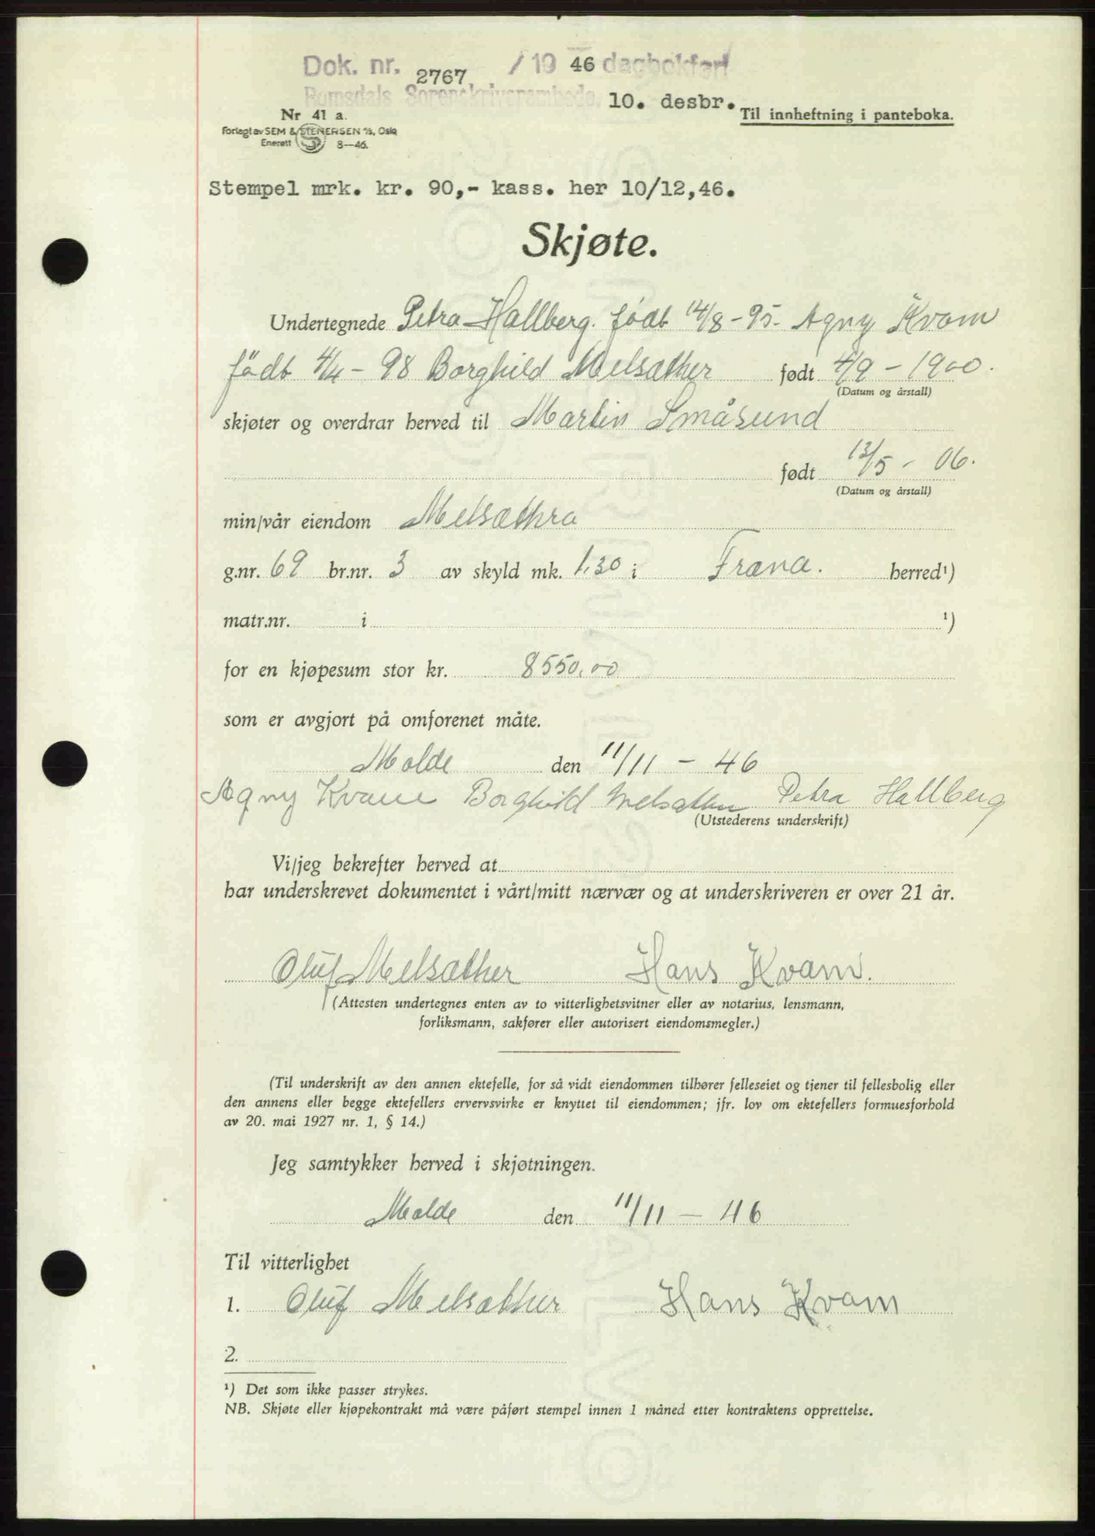 Dok. nr. 2767 / 19 46 dagbokført
Romsdals Sorenskriverembede. 10. desbr.
Nr 41 a.
Til innheftning i panteboka.
Forlagt av SEM & STENERSEN A/S, Oslo
Enerett 8—46.
Stempel mrk. kr. 90,- kass. her 10/12,46.
Skjøte.
Undertegnede Petra Hallberg. født 14/8-95- Agny Kvam
født 4/4-98 Borghild Melsæther født 4/9-1900.
(Datum og årstall)
skjøter og overdrar herved til Martin Småsund
født 13/5- 06.
(Datum og årstall)
min/vår eiendom Melsæthra
g.nr. 69 br.nr. 3 av skyld mk. 1,30 i Fræna. herred¹)
matr.nr. i ¹)
for en kjøpesum stor kr. 8550,00
som er avgjort på omforenet måte.
Molde den 11/11 - 46
Agny Kvam Borghild Melsæther Petra Hallberg
(Utstederens underskrift)
Vi/jeg bekrefter herved at
har underskrevet dokumentet i vårt/mitt nærvær og at underskriveren er over 21 år.
Oluf Melsæther Hans Kvam.
(Attesten undertegnes enten av to vitterlighetsvitner eller av notarius, lensmann,
forliksmann, sakfører eller autorisert eiendomsmegler.)
(Til underskrift av den annen ektefelle, for så vidt eiendommen tilhører felleseiet og tjener til fellesbolig eller
den annens eller begge ektefellers ervervsvirke er knyttet til eiendommen; jfr. lov om ektefellers formuesforhold
av 20. mai 1927 nr. 1, § 14.)
Jeg samtykker herved i skjøtningen.
Molde den 11/11 - 46
Til vitterlighet
1. Oluf Melsæther Hans Kvam
2.
¹) Det som ikke passer strykes.
NB. Skjøte eller kjøpekontrakt må være påført stempel innen 1 måned etter kontraktens opprettelse.